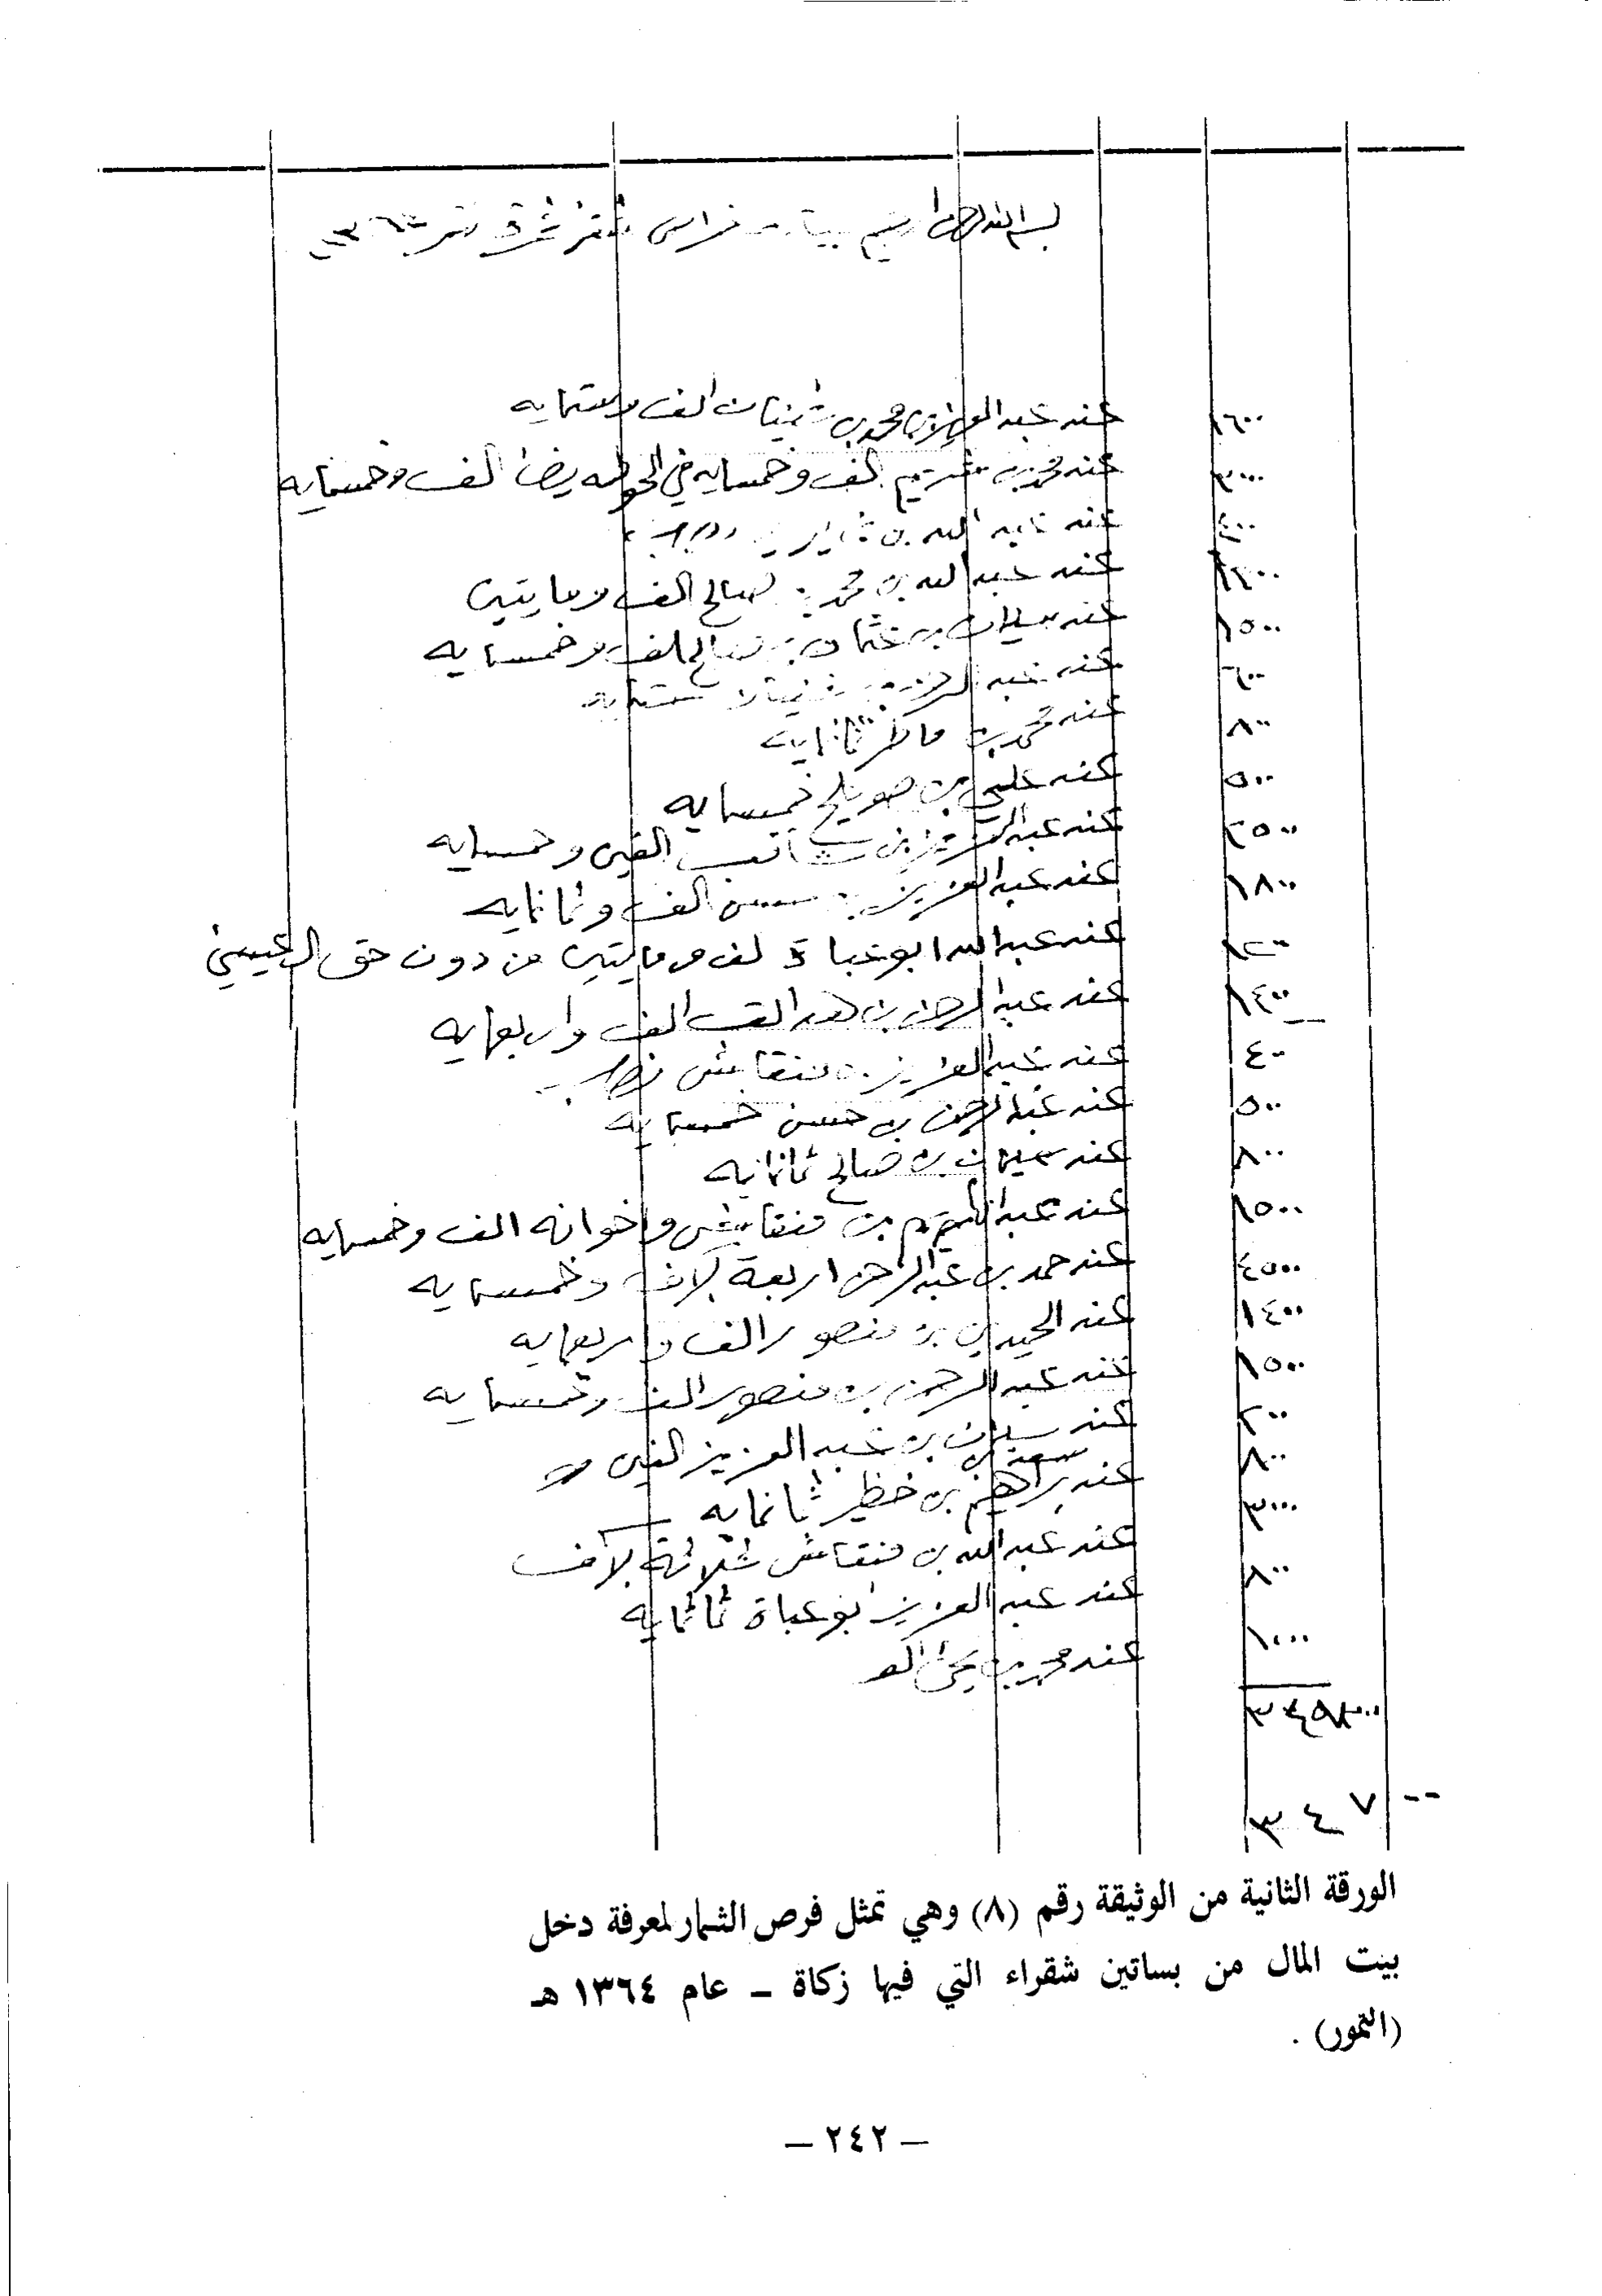 بسم الله الرحمن الرحيم بيان خراص شقر تمر
١٦٠٠ عند عبد العزيز بن محمد بن ثنيان الف وستمايه
٣٠٠٠ عند محمد بن الف وخمسمايه في الحوطه يضا الف وخمسمايه
٤٠٠ عند عبد الله بن
١٢٠٠ عند عبد الله بن محمد بن صالح الف ومايتين
١٥٠٠ عند سليمان بن عثمان بن صالح الف وخمسمايه
٦٠٠ عند عبد الرحمن بن ستمايه
٨٠٠ عند محمد بن ماطر ثمانمايه
٥٠٠ عند علي بن صويلح خمسمايه
٢٥٠٠ عند عبد العزيز بن الفين وخمسمايه
١٨٠٠ عند عبد العزيز بن الف وثمانمايه
١٢٠٠ عند عبد الله ابو عباة لف ومايتين من دون حق العيسى
١٤٠٠ عند عبد الرحمن بن الف واربعمايه
٤٠٠ عند عبد العزيز بن منقاش
٥٠٠ عند عبد الرحمن بن حسن خمسمايه
٨٠٠ عند سليمان بن صالح ثمانمايه
١٥٠٠ عند بن منقاش واخوانه الف وخمسمايه
٤٥٠٠ عند حمد بن عبد الرحمن اربعة الاف وخمسمايه
١٤٠٠ عند الحميدي بن منصور الف واربعمايه
١٥٠٠ عند عبد الرحمن بن منصور الف وخمسمايه
٢٠٠٠ عند سليمان بن عبد العزيز الفين
سعد بن
٨٠٠ عند براهيم بن خظير ثمانمايه
٣٠٠٠ عند عبد الله بن منقاش ثلاثة الاف
٨٠٠ عند عبد العزيز ابو عباة ثمانمايه
١٠٠٠ عند محمد بن يحيى الف
٣٤٧--
الورقة الثانية من الوثيقة رقم (٨) وهي تمثل فرص الثمار لمعرفة دخل
بيت المال من بساتين شقراء التي فيها زكاة – عام ١٣٦٤ هـ
(التمور) .
– ٢٤٢ –